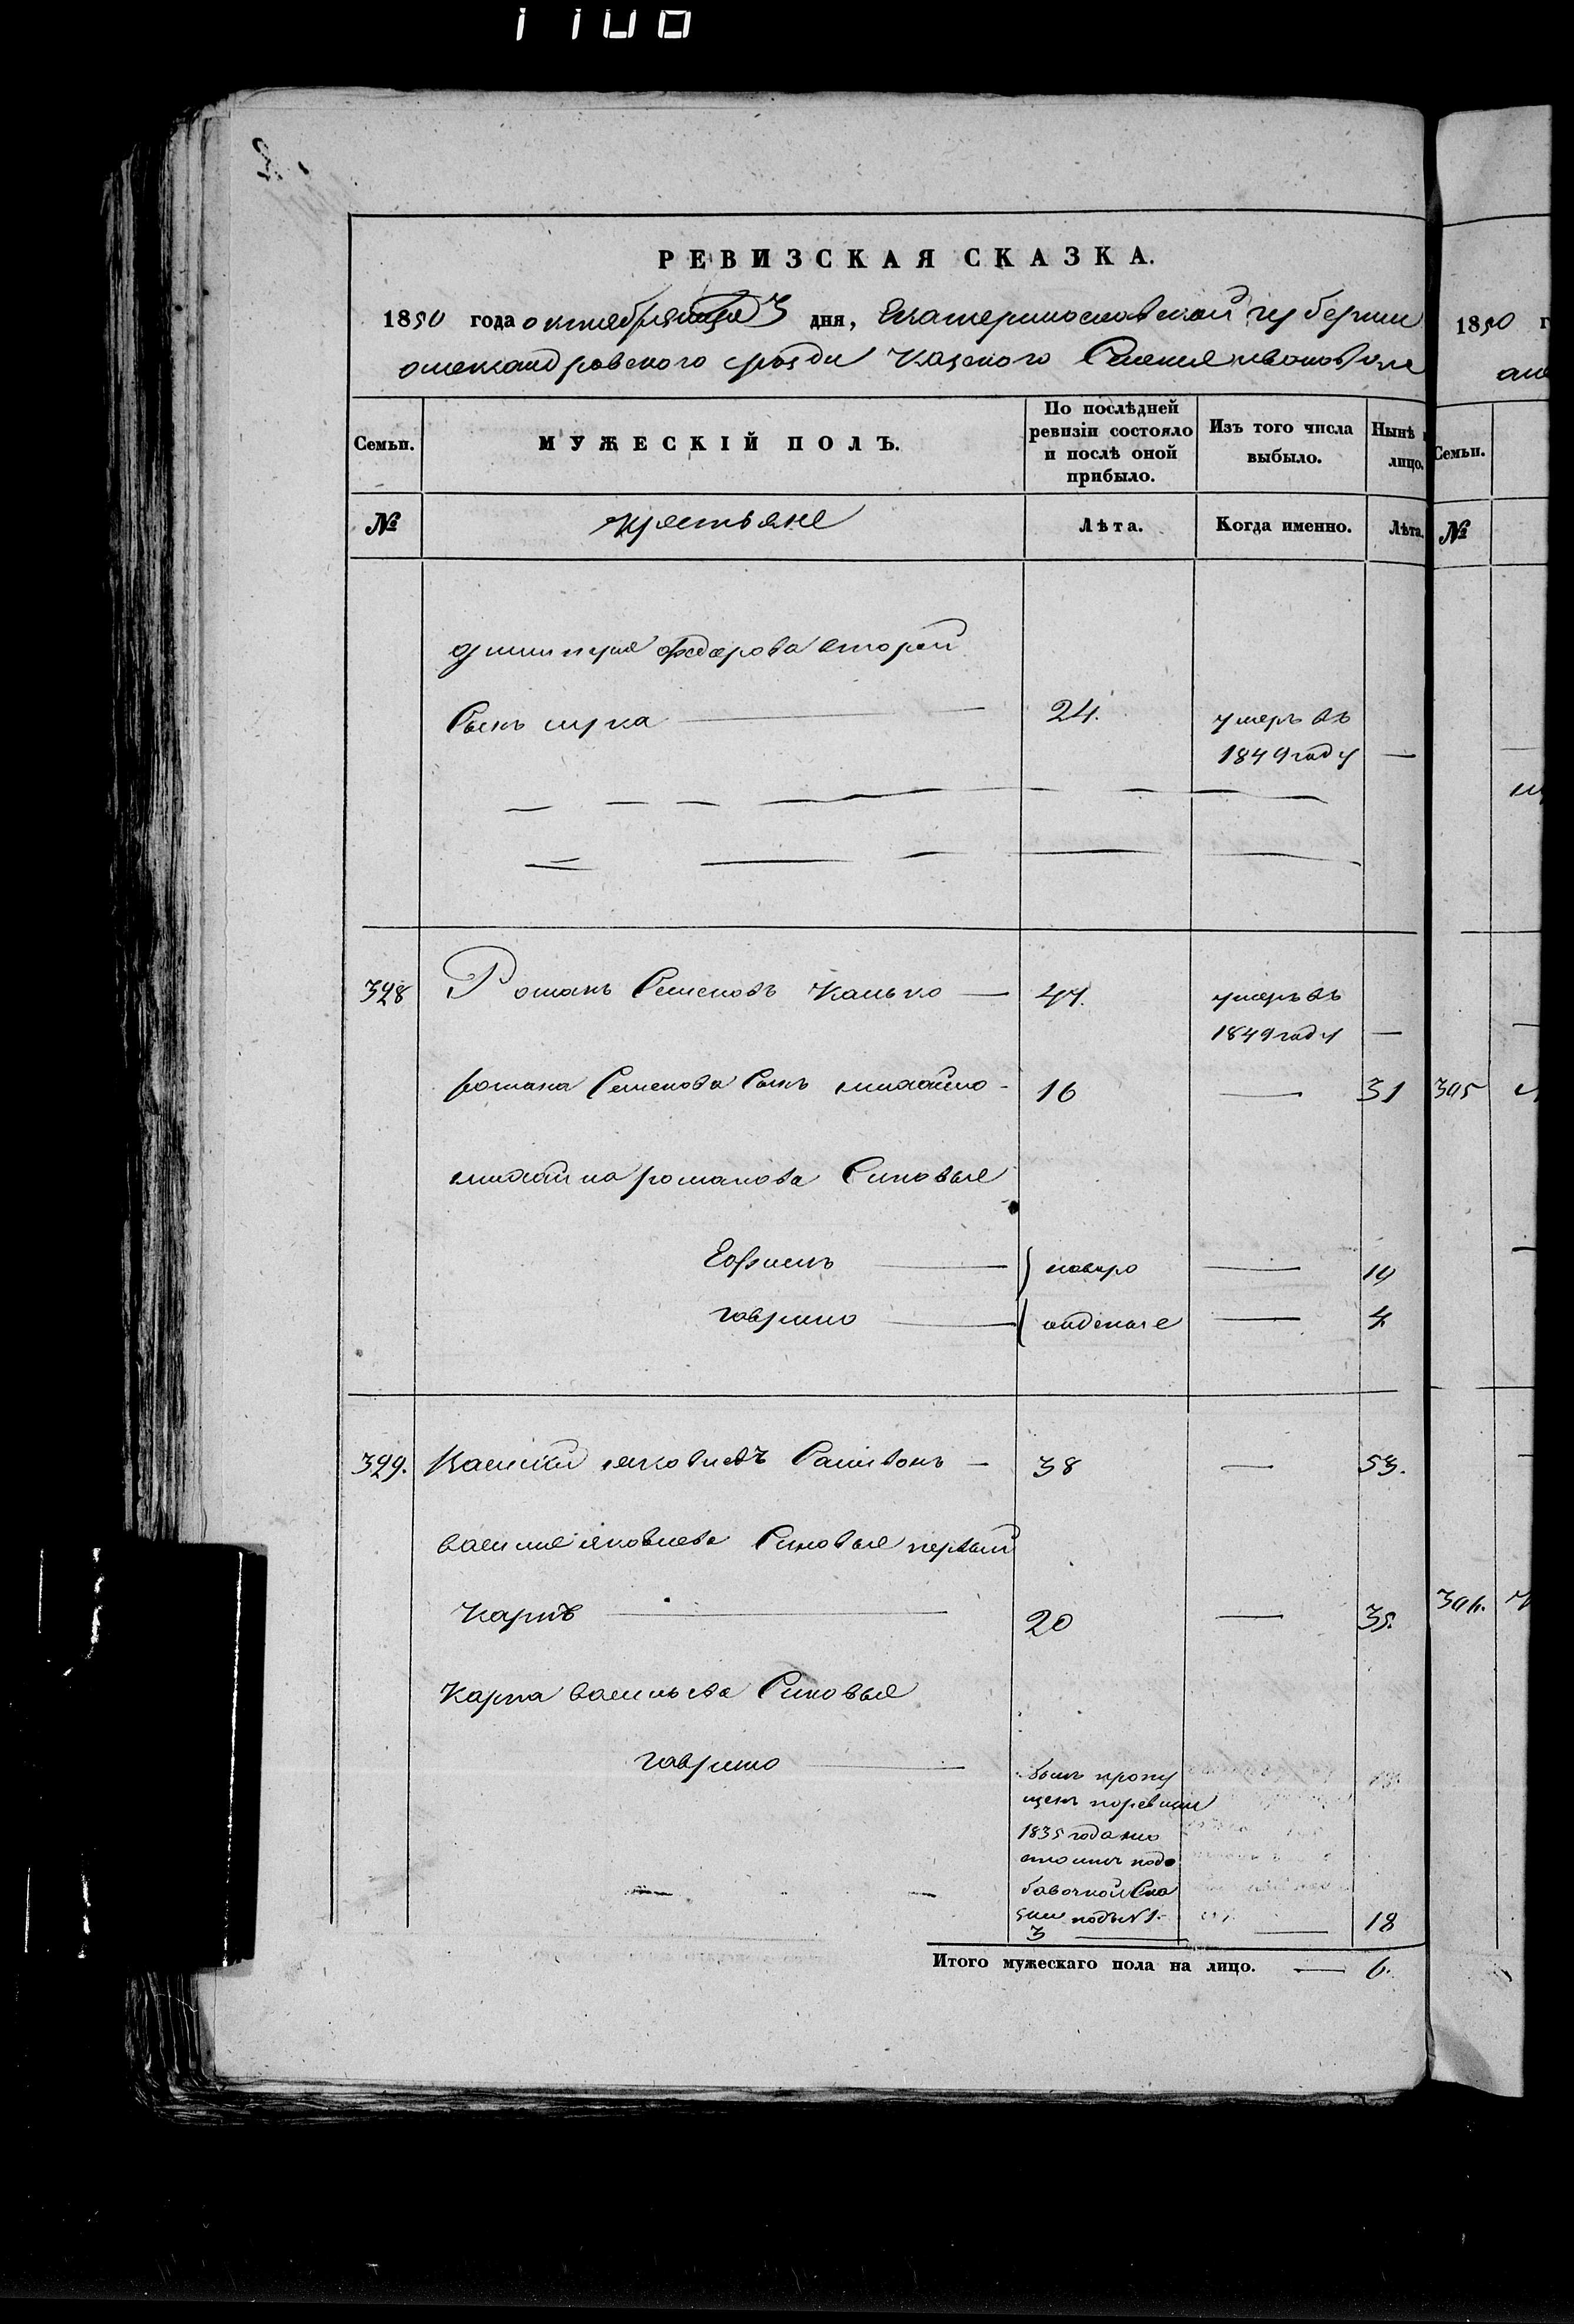 РЕВИЗСКАЯ СКАЗКА.
1850 года октября 3 дня, Екатеринославской губернии
александровского уезда Казеного Селения ивановки
Семьи. МУЖЕСКІЙ ПОЛЪ. По послѣдней ревизіи состояло и послѣ оной прибыло. Изъ того числа выбыло. Нынѣ лицо.
№ крестьяне Лѣта. Когда именно. Лѣта.
федорова второй
Сынъ лука 24. умеръ въ
1849 году
328 Романъ Семеновъ Канько 47. умеръ въ
1849 году
романа Семенова Сынъ михайло 16 31
михайла романова Синовья
Ефимъ новоро 10
гаврило жденые 4
329. Василий яковлевъ 38 53.
василия яковлева Синовья первый
Карпъ 20 35.
Карпа васильева Синовья
гаврило былъ пропу
щенъ поревизии
1835 года но
подо
бавочной Ска
зки подъ №1.
3 18
Итого мужескаго пола на лицо. 6.
1850 г
Семьи.
№
305
306.